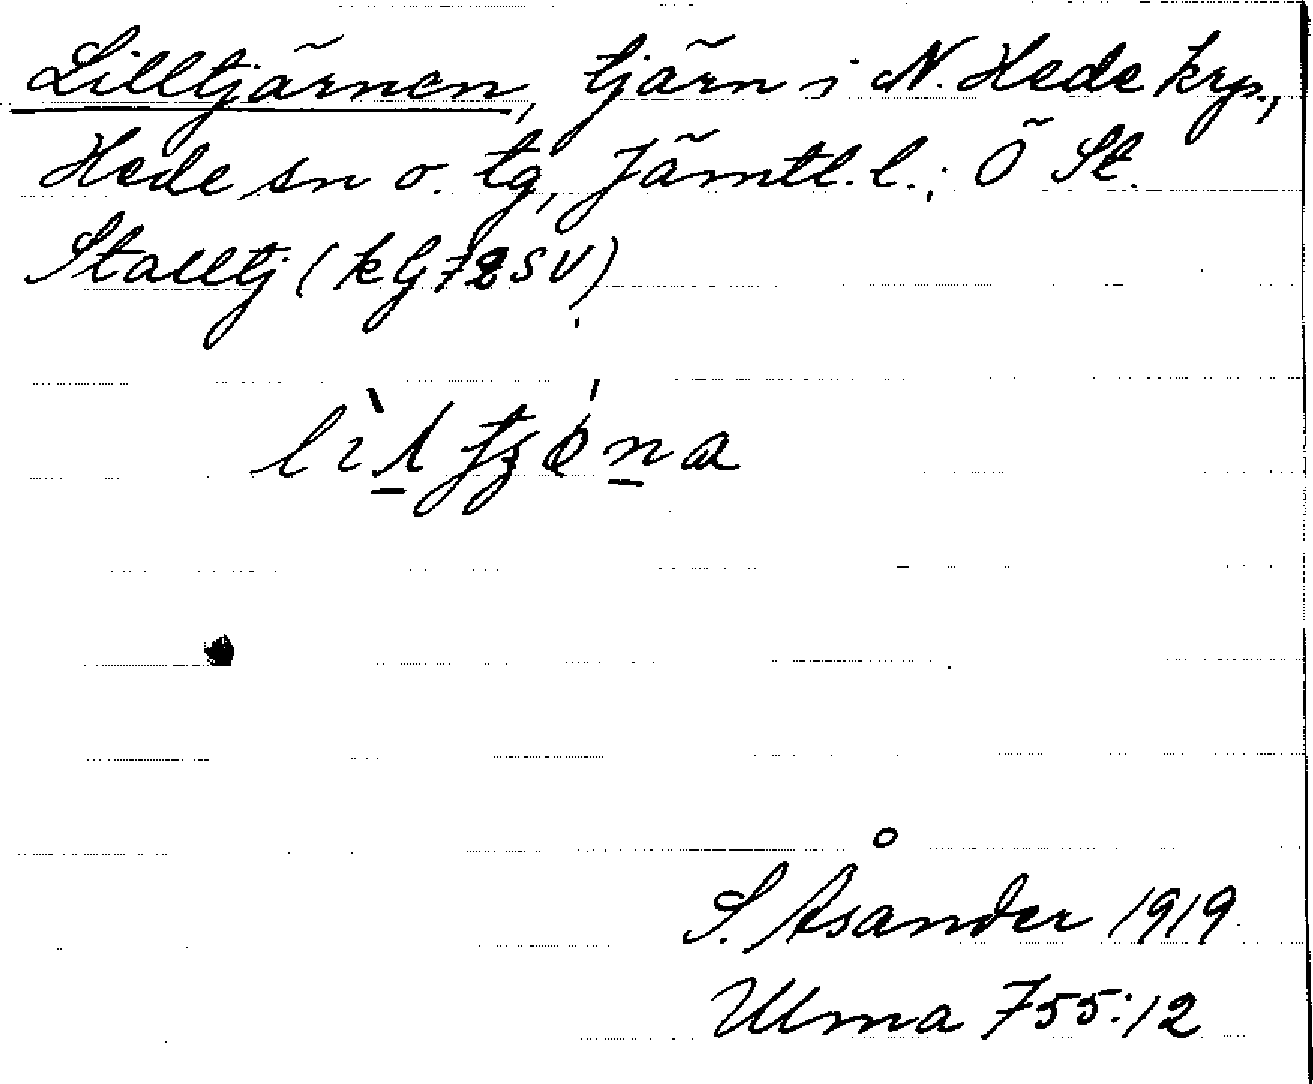 Lilltjärnen, tjärn i N. Hede krp.,
Hede sn o. tg, Jämtl. l.; Ö St.
Stalltj (kg 72 SV)
S. Åsander 1919
Ulma 755:12